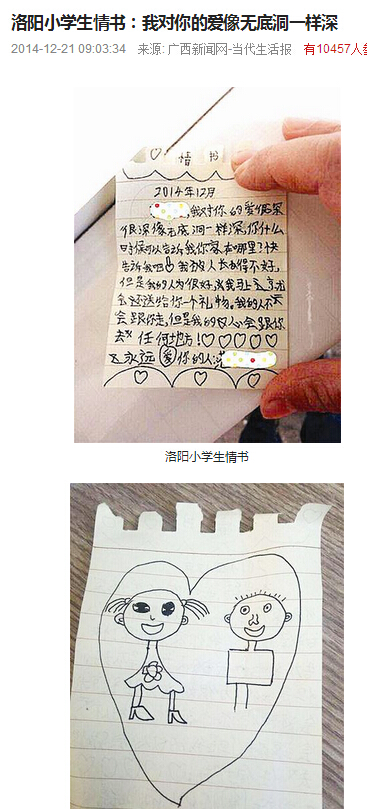 洛阳小学生情书：我对你的爱像无底洞一样深
2014-12-21 09:03:34 来源: 广西新闻网-当代生活报 有10457人参
情书
2014年12月
我对你的爱很深
很深像无底洞一样深,你什么
时候可以告诉我你家在哪里?快
告诉我吧 我的人长的得不好,
但是我的人为很好,我我马上
会送给你一个礼物。我的人不
会跟你走,但是我的心会跟你
去 任何地方!
永远爱你的人:
洛阳小学生情书